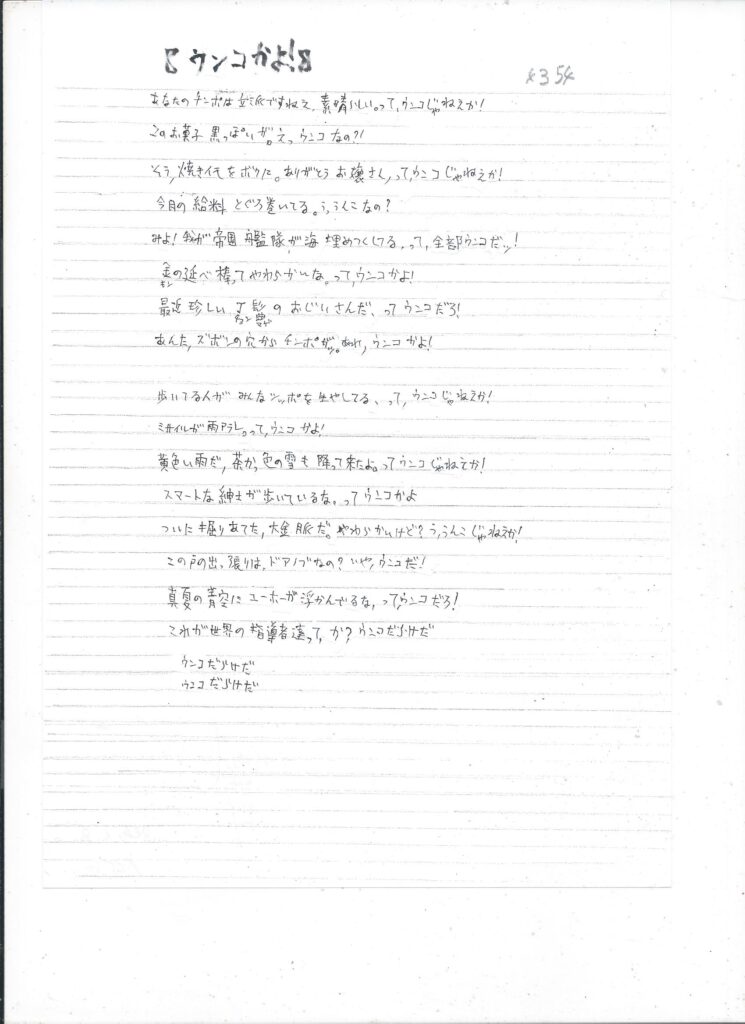 『ウンコかよ!』
あなたのチンポは立派ですねえ、素晴らしい。って、ウンコじゃねえか!
このお菓子 黒っぽいが。えっ ウンコなの?!
そう、焼きイモをボクに。ありがとう お嬢さん、って、ウンコじゃねえか!
今月の給料 とぐろ巻いてる。う、うんこなの?
みよ! 我が帝国艦隊が海埋めつくしてる、って、全部ウンコだッ!
金の延べ棒ってやわらかいな。って、ウンコかよ!
キン
最近珍しい丁髷のおじいさんだ、ってウンコだろ!
チョンマゲ
あんた、ズボンの穴からチンポがッ。あれ、ウンコかよ!
歩いてる人がみんなシッポを生やしてる、って、ウンコじゃねえか!
ミサイルが雨アラレ。って、ウンコかよ!
黄色い雨だ、茶かっ色の雪も降って来たよ。ってウンコじゃねえか!
スマートな紳士が歩いているな。ってウンコかよ
ついに掘りあてた、大金脈だ。やわらかいけど? う、うんこじゃねえか!
この戸の出っ張りは、ドアノブなの? いや、ウンコだ!
真夏の青空にユーホーが浮かんでるな、って、ウンコだろ!
これが世界の指導者達って、か? ウンコだらけだ
ウンコだらけだ
ウンコだらけだ